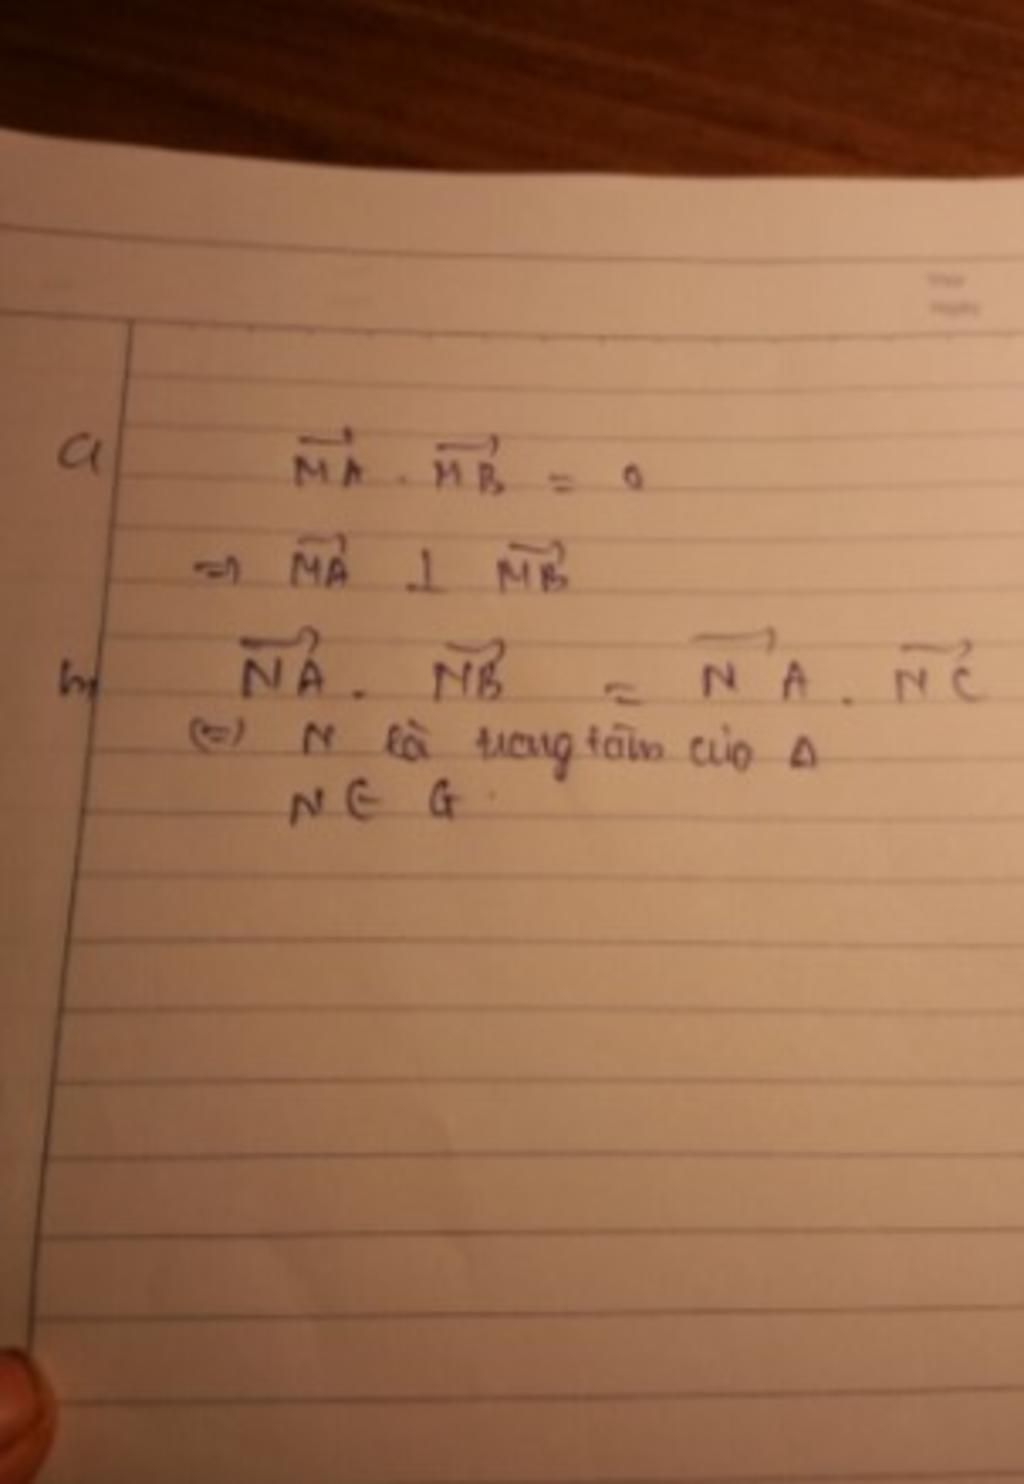 a, MA . MB = 0
=> MA ⊥ MB
b, NA . NB = NA . NC
(=) N là trọng tâm của Δ
N ∈ G.